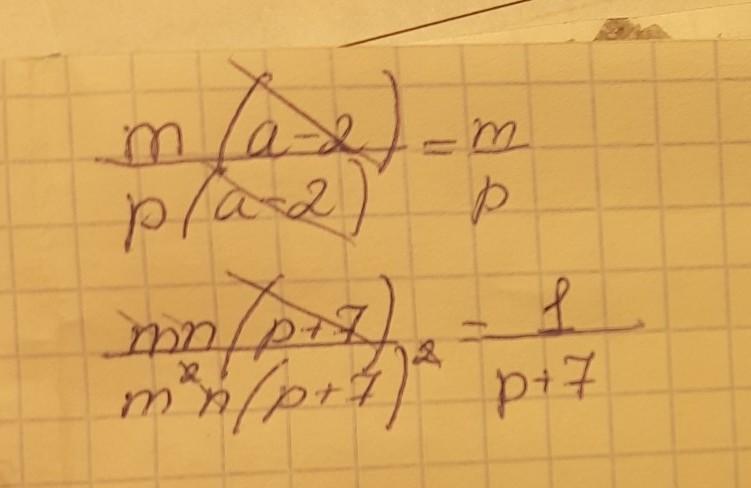 m(a-2)/p(a-2) = m/p
mn(p+7)/m²n(p+7)² = 1/p+7